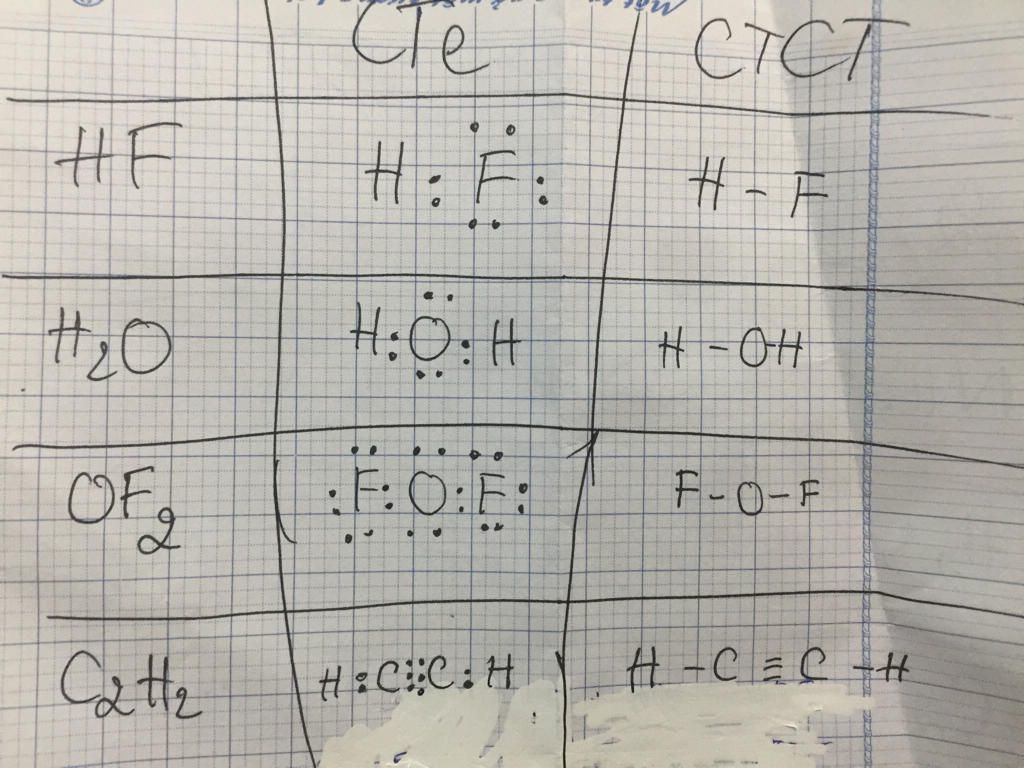 CTe CTCT
HF H : F : H - F
H2O H : O : H H - O-H
OF2 : F : O : F : F - O - F
C2H2 H : C ⫶⫶ C : H H - C ≡ C - H